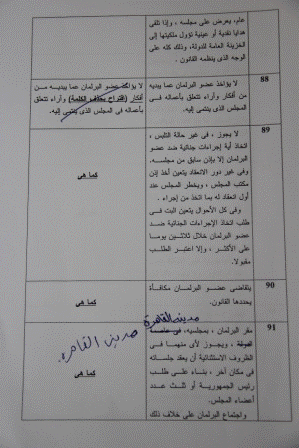 عام، يعرض على مجلسه ، وإذا تلقى
هدايا نقدية أو عينية تؤول ملكيتها إلى
الخزينة العامة للدولة، وذلك كله على
الوجه الذى ينظمه القانون .
88
لا يؤاخذ عضو البرلمان عما يبديه
من أفكار وآراء تتعلق بأعماله فى
المجلس الذى ينتمى إليه.
لا يؤاخذ عضو البرلمان عما يبديه مـن
أفكار (اقتراح بحذف الكلمة) وآراء تتعلق
بأعماله في المجلس الذى ينتمى إليه.
89
لا يجوز ، في غير حالة التلبس ،
اتخاذ أية إجراءات جنائية ضد عضو
البرلمان إلا بإذن سابق من مجلسـه.
وفى غير دور الانعقاد يتعين أخذ إذن
مكتب المجلس ، ويخطر المجلس عند
أول انعقاد له بما اتخذ من إجراء .
وفى كل الأحوال يتعين البت فـى
طلب اتخاذ الإجراءات الجنائية ضـد
عضو البرلمان خلال ثلاثـين يومـًا
على الأكثـر ، وإلا اعتبـر الطلـب
مقبولا.
كما هي
90
يتقاضى عضـو البرلمـان مكافـأة
يحددها القانون.
كما هي
91
مدينة القاهرة
مقر البرلمان ، بمجلسيه، فى عاصمة
الدولة ، ويجـوز لأى منهمـا فـى
الظروف الاستثنائية أن يعقد جلسـاته
في مكان آخر ، بنـاء علـى طلـب
رئيس الجمهوريـة أو ثلـث عـدد
أعضاء المجلس.
واجتماع البرلمان على خلاف ذلك
مدينة القاهرة.
كما هي